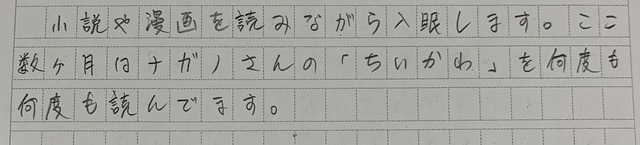 小説や漫画を読みながら入眠します。ここ
数ヶ月はナガノさんの「ちいかわ」を何度も
何度も読んでます。